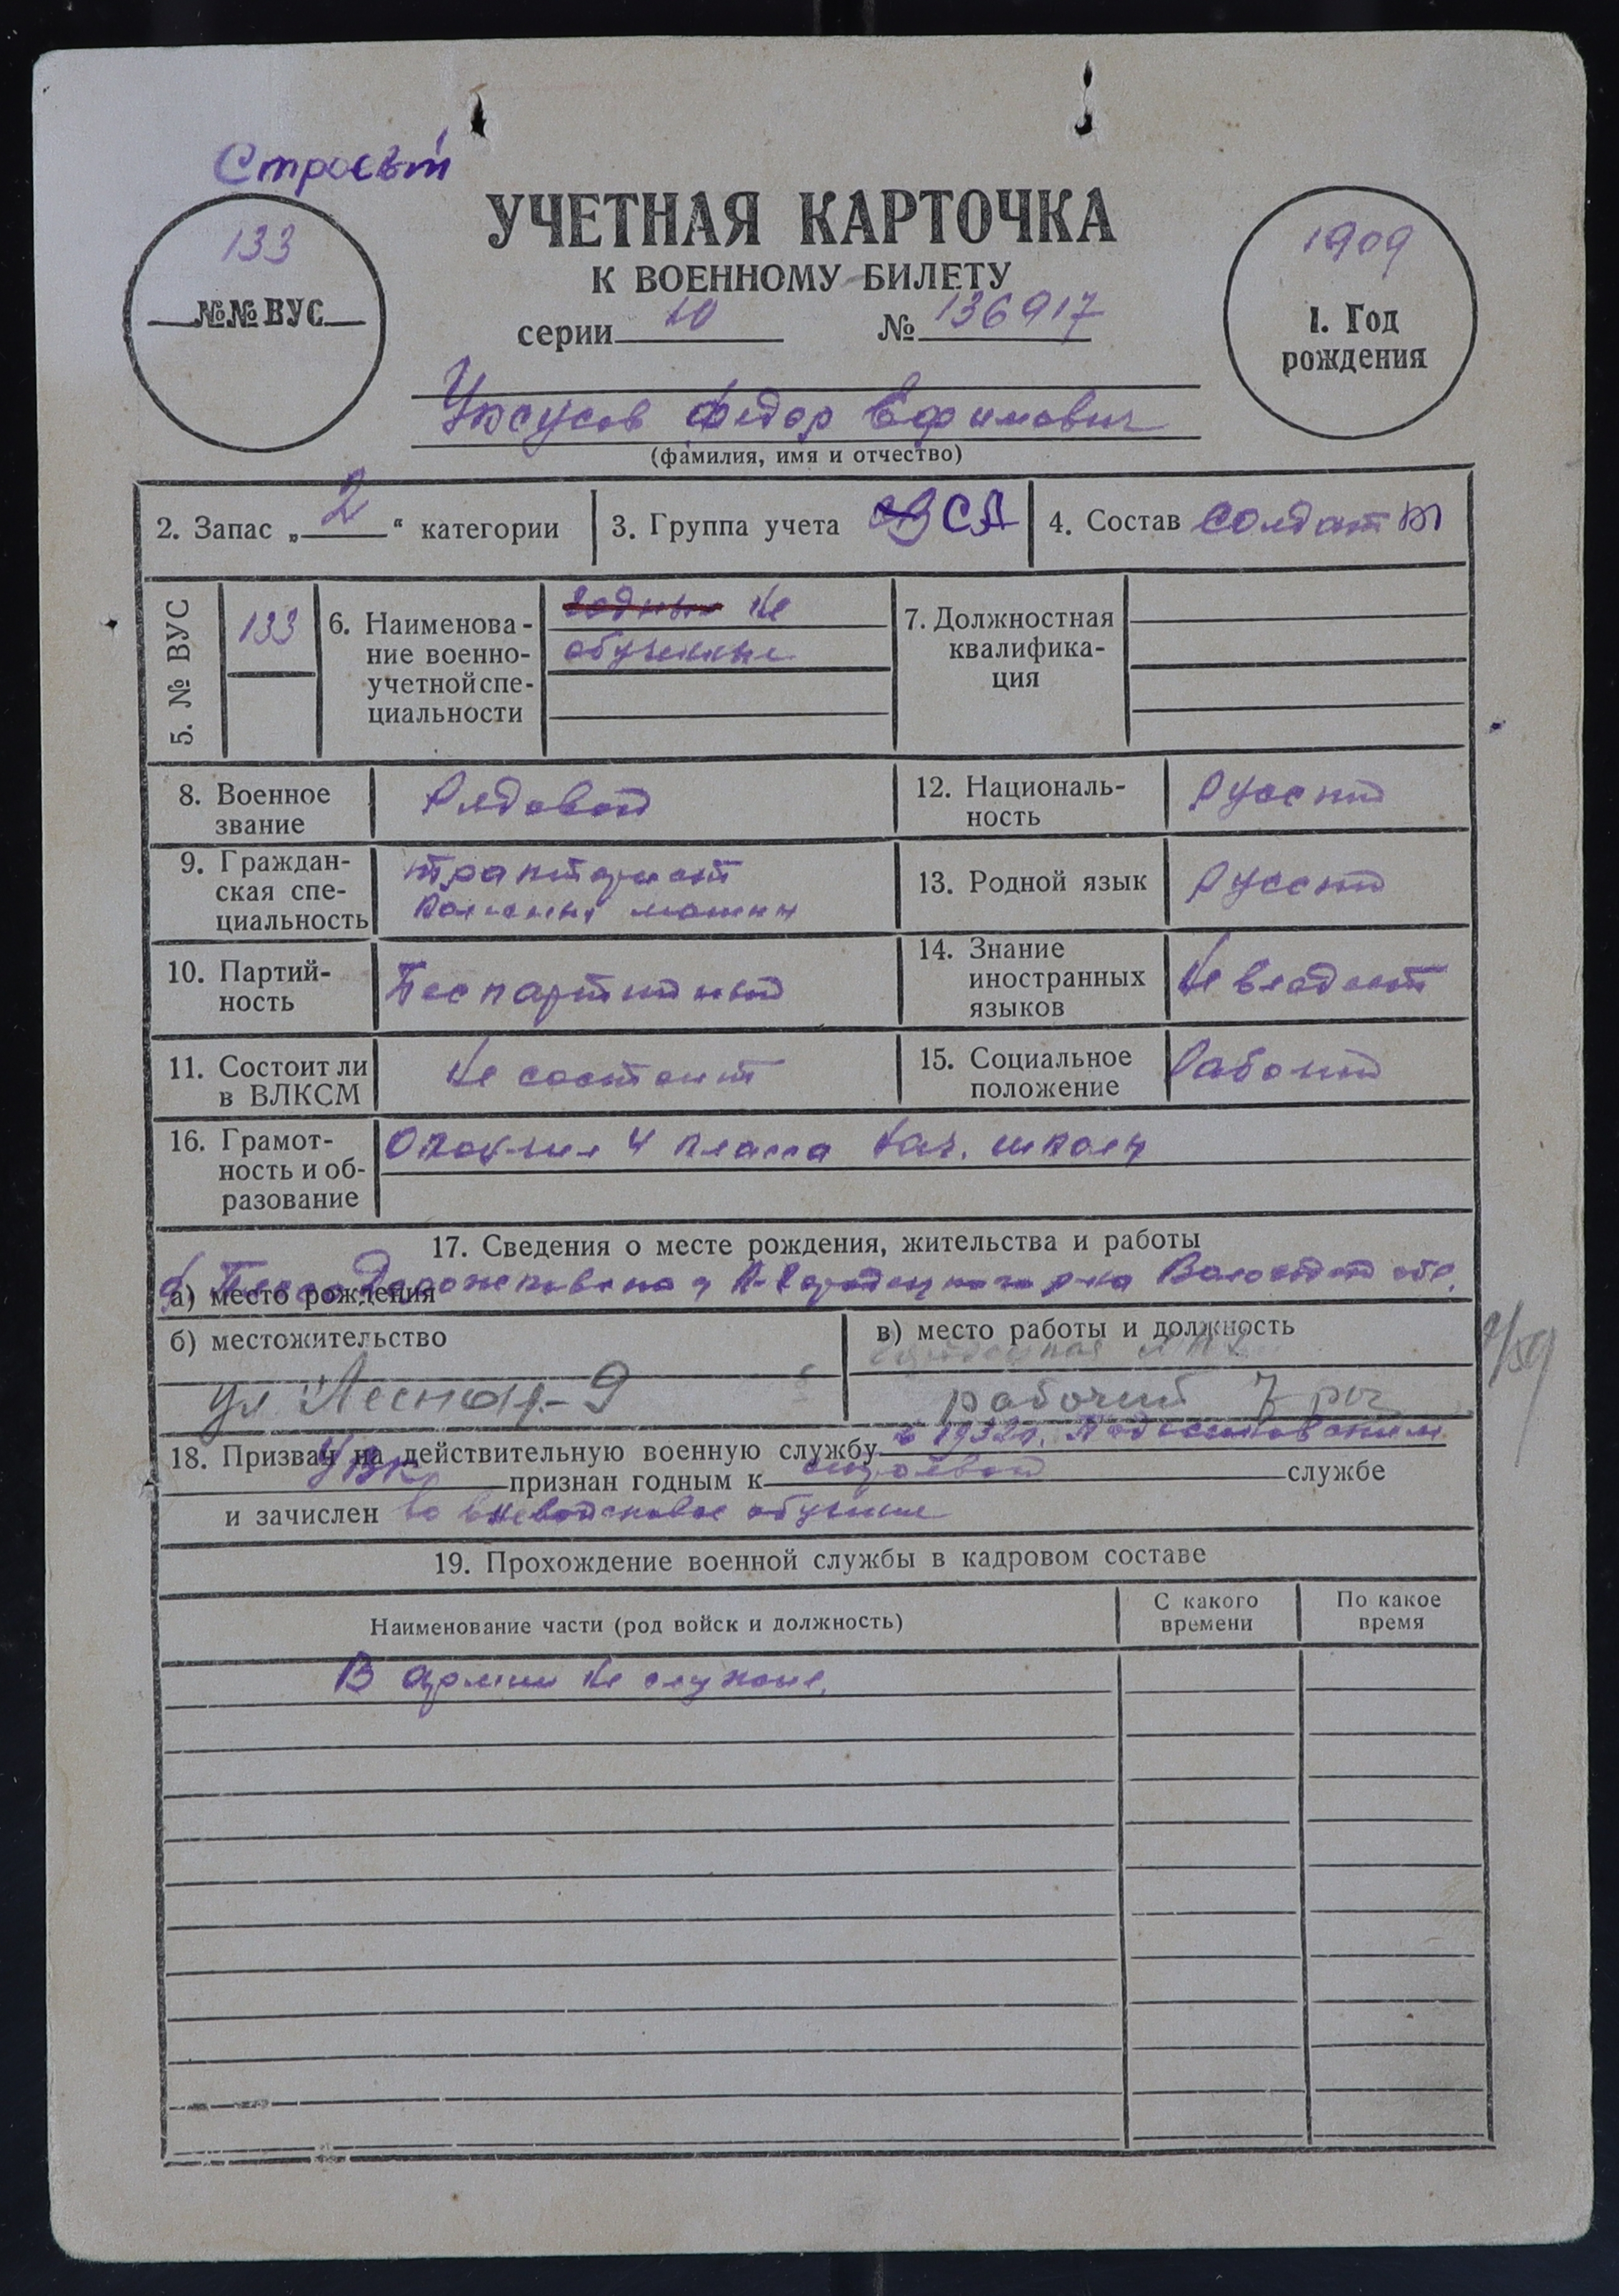 Строевой
133
№№ ВУС
УЧЕТНАЯ КАРТОЧКА
К ВОЕННОМУ БИЛЕТУ
серии 10 № 136917
1909
1. Год
рождения
Федор Ефимович
(фамилия, имя и отчество)
2. Запас „2“ категории
3. Группа учета СА
4. Состав солдат
5. № ВУС
133
6. Наименова-
ние военно-
учетной спе-
циальности
годные не
обученные
7. Должностная
квалифика-
ция
8. Военное
звание
Рядовой
12. Националь-
ность
Русский
9. Граждан-
ская спе-
циальность
тракторист
машин
13. Родной язык
Русский
10. Партий-
ность
Беспартийный
14. Знание
иностранных
языков
Не владеет
11. Состоит ли
в ВЛКСМ
Не состоит
15. Социальное
положение
Рабочий
16. Грамот-
ность и об-
разование
Окончил 4 класса нач. школы
17. Сведения о месте рождения, жительства и работы
а) место рождения
К-Городецкого р-на Вологодской обл.
б) местожительство
ул Лесная-9
в) место работы и должность
рабочий
1/59
18. Призван на действительную военную службу в 1932г. Подосиновским
РВК признан годным к строевой службе
и зачислен во вневойсковое обучение
19. Прохождение военной службы в кадровом составе
Наименование части (род войск и должность)
С какого
времени
По какое
время
В армии не служил.